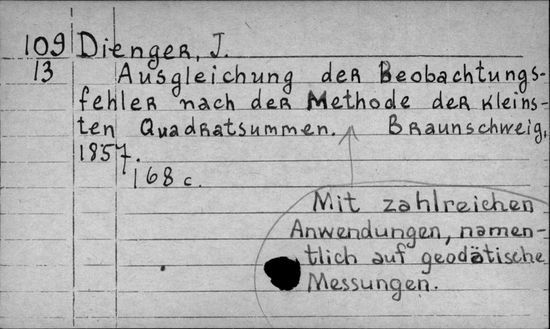 109 Dienger, J.
13 Ausgleichung der Beobachtungs-
fehler nach der Methode der kleins-
ten Quadratsummen. Braunschweig,
1857.
168 c.
Mit zahlreichen
Anwendungen, namen-
tlich auf geodätische
Messungen.